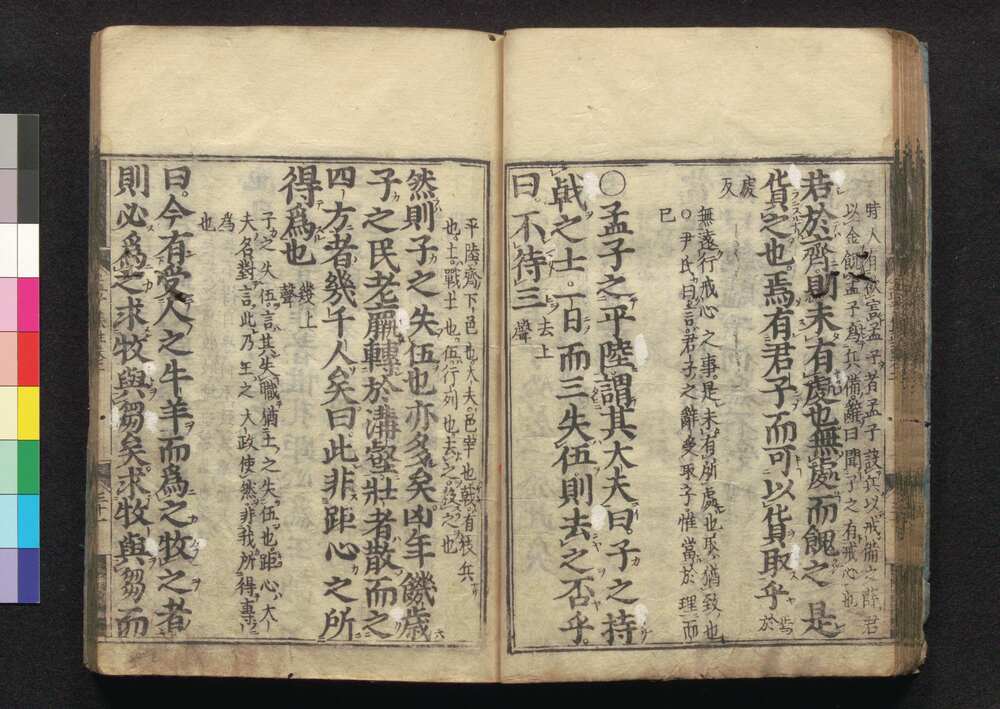 時人有欲害孟子者孟子設兵以戒備之薛君
以金餽孟子爲兵備辭曰聞子之有戒心也
若於齊則未有處也無處而餽之是
貨之也焉有君子而可以貨取乎焉於
虔
反
無遠行戒心之事是未有所處也取猶致也
○尹氏曰言君子之辭受取予惟當於理而
已
○孟子之平陸謂其大夫曰子之持
戟之士一日而三失伍則去之否乎
曰不待三去上聲
平陸齊下邑也大夫邑宰也戟有枝兵
也士戰士也伍行列也去之殺之也
然則子之失伍也亦多矣凶年饑歲
子之民老羸轉於溝壑壯者散而之
四方者幾千人矣曰此非距心之所
得爲也幾上聲
子之失伍言其失職猶士之失伍也距心大
夫名對言此乃王之大政使然非我所得專
爲
也
曰今有受人之牛羊而爲之牧之者
則必爲之求牧與芻矣求牧與芻而